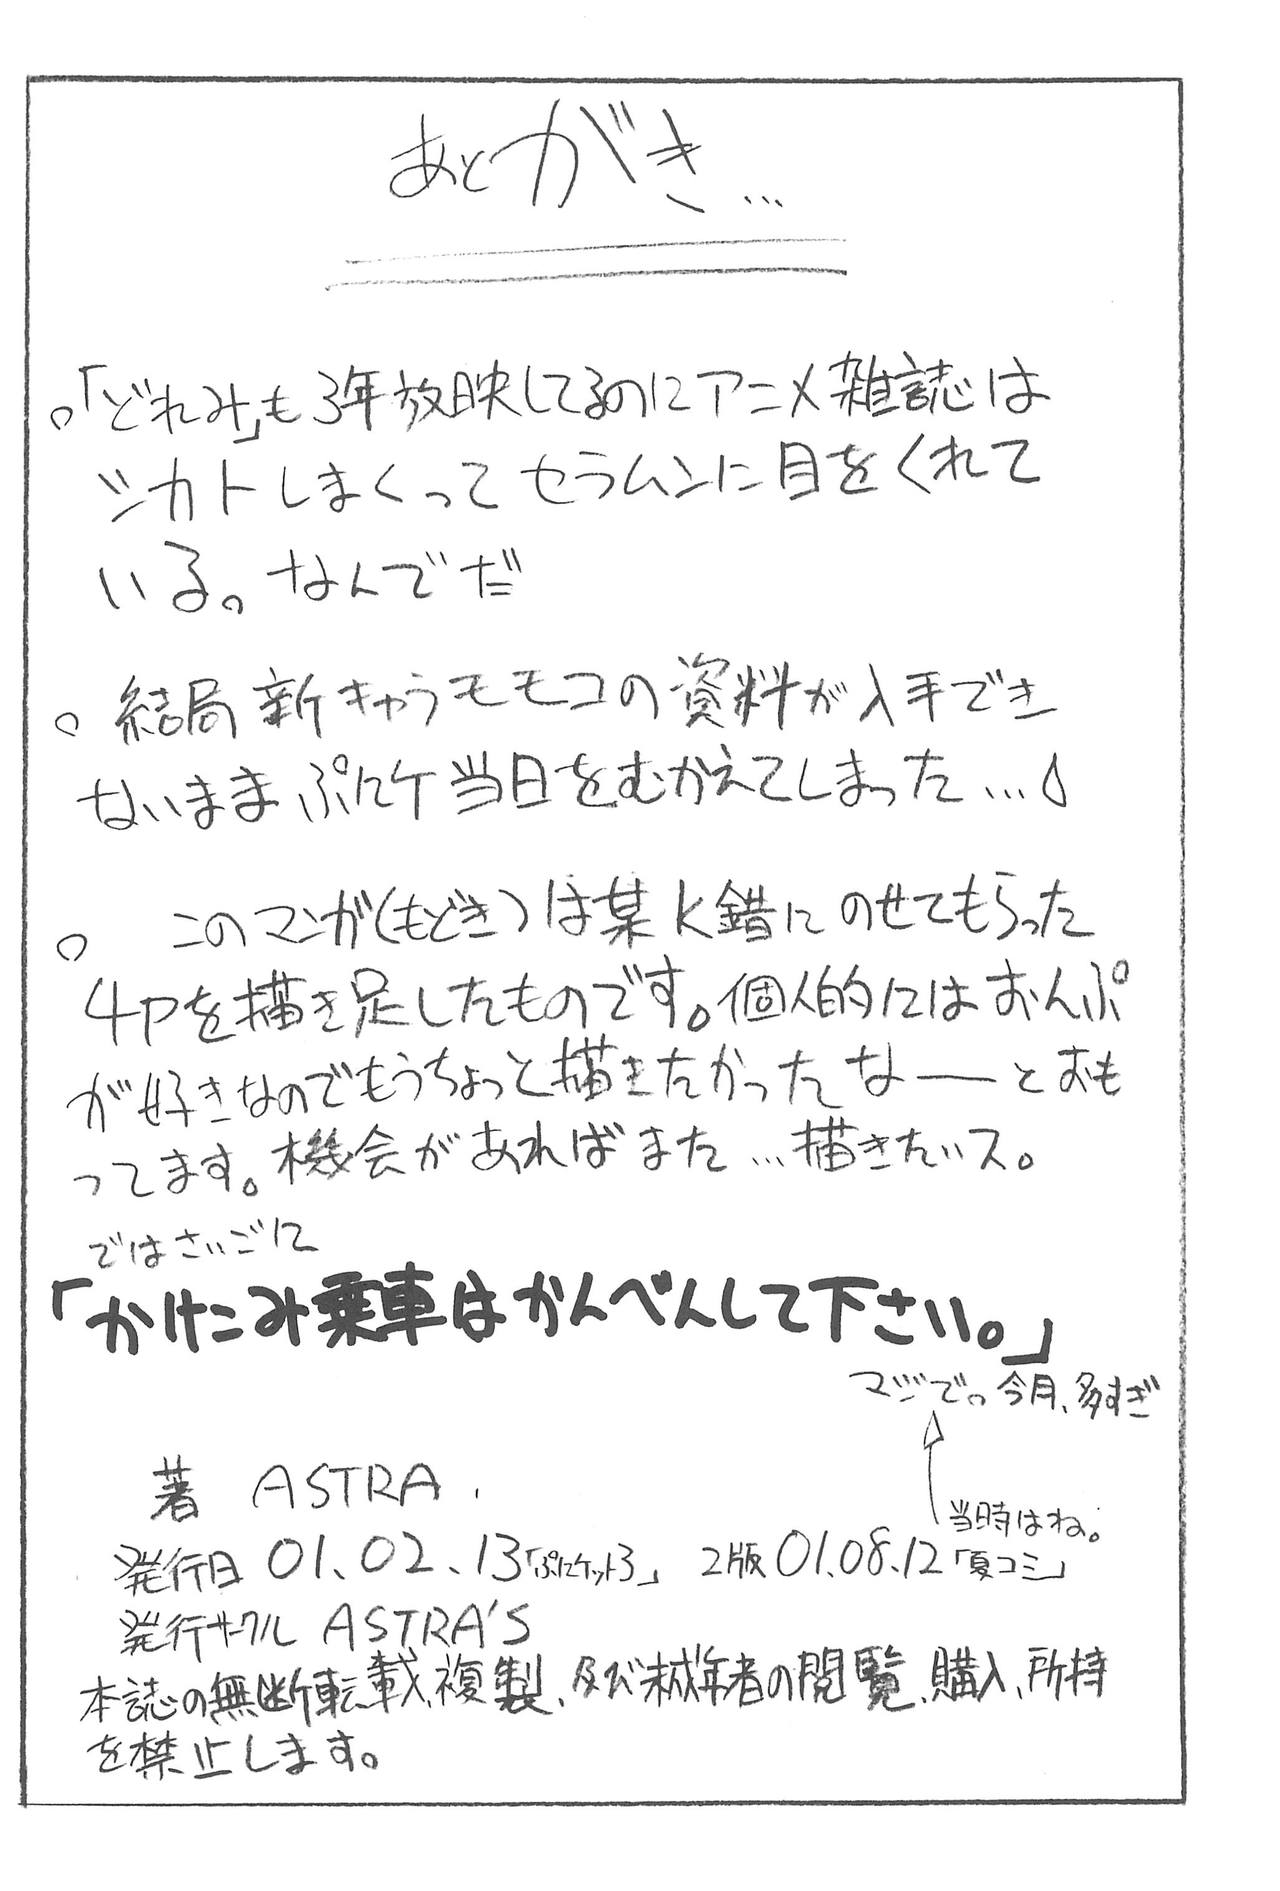 あとがき...
。「どれみ」も3年放映してるのにアニメ雑誌は
シカトしまくってセラムンに目をくれて
いる。なんでだ
。結局新キャラモモコの資料が入手でき
ないままぷにケ当日をむかえてしまった...
。このマンガ(もどき)は某K錯にのせてもらった
4Pを描き足したものです。個人的にはおんぷ
が好きなのでもうちょっと描きたかったなーとおも
ってます。機会があればまた...描きたいス。
ではさいごに
「かけこみ乗車はかんべんして下さい。」
マジで。今月、多すぎ
当時はね。
著 ASTRA.
発行日 01.02.13「ぷにケット3」 2版 01.08.12「夏コミ」
発行サークル ASTRA'S
本誌の無断転載、複製、及び未成年者の閲覧、購入、所持
を禁止します。